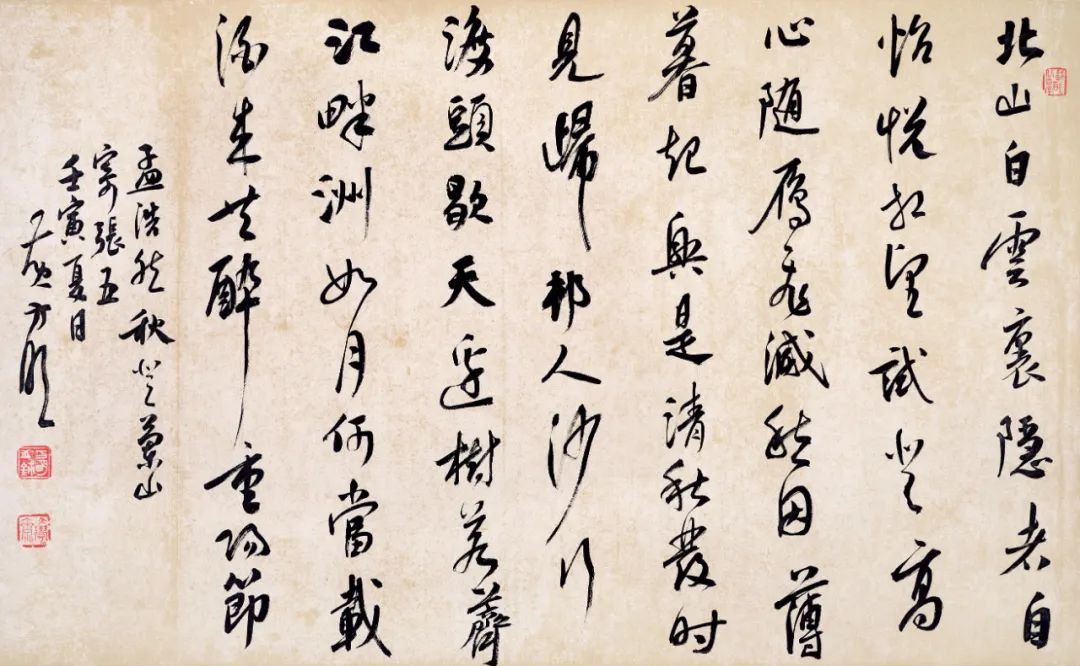 北山白雲裏隱者自
怡悅相望試登高
心随鴈飛滅愁因薄
暮起興是清秋發时
見歸邨人沙行
渡頭歇天邊樹若薺
江畔洲如月何當載
酒來共醉重陽節
孟浩然秋登萬山
寄張五
壬寅夏日